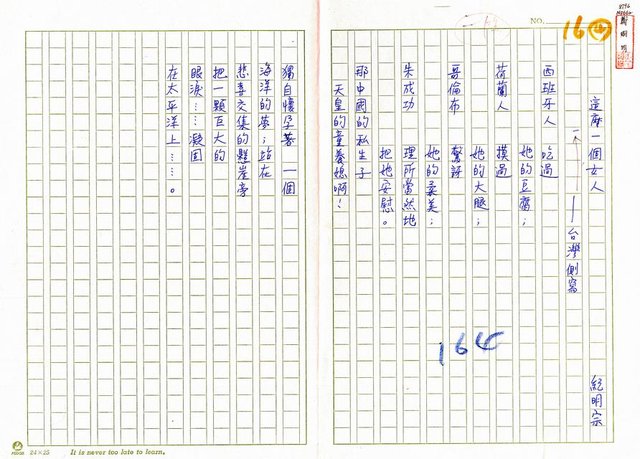 NO. 16
這麼一個女人
——台灣側寫
紀明宗
西班牙人 吃過
她的豆腐；
荷蘭人 摸過
她的大腿；
哥倫布 驚訝
她的柔美；
朱成功 理所當然地
把她安慰。
那中國的私生子
天皇的童養媳啊！
獨自懷孕著 一個
海洋的夢；站在
悲喜交集的懸崖旁
把一顆巨大的
眼淚……凝固
在太平洋上……。
164
24×25 It is never too late to learn.